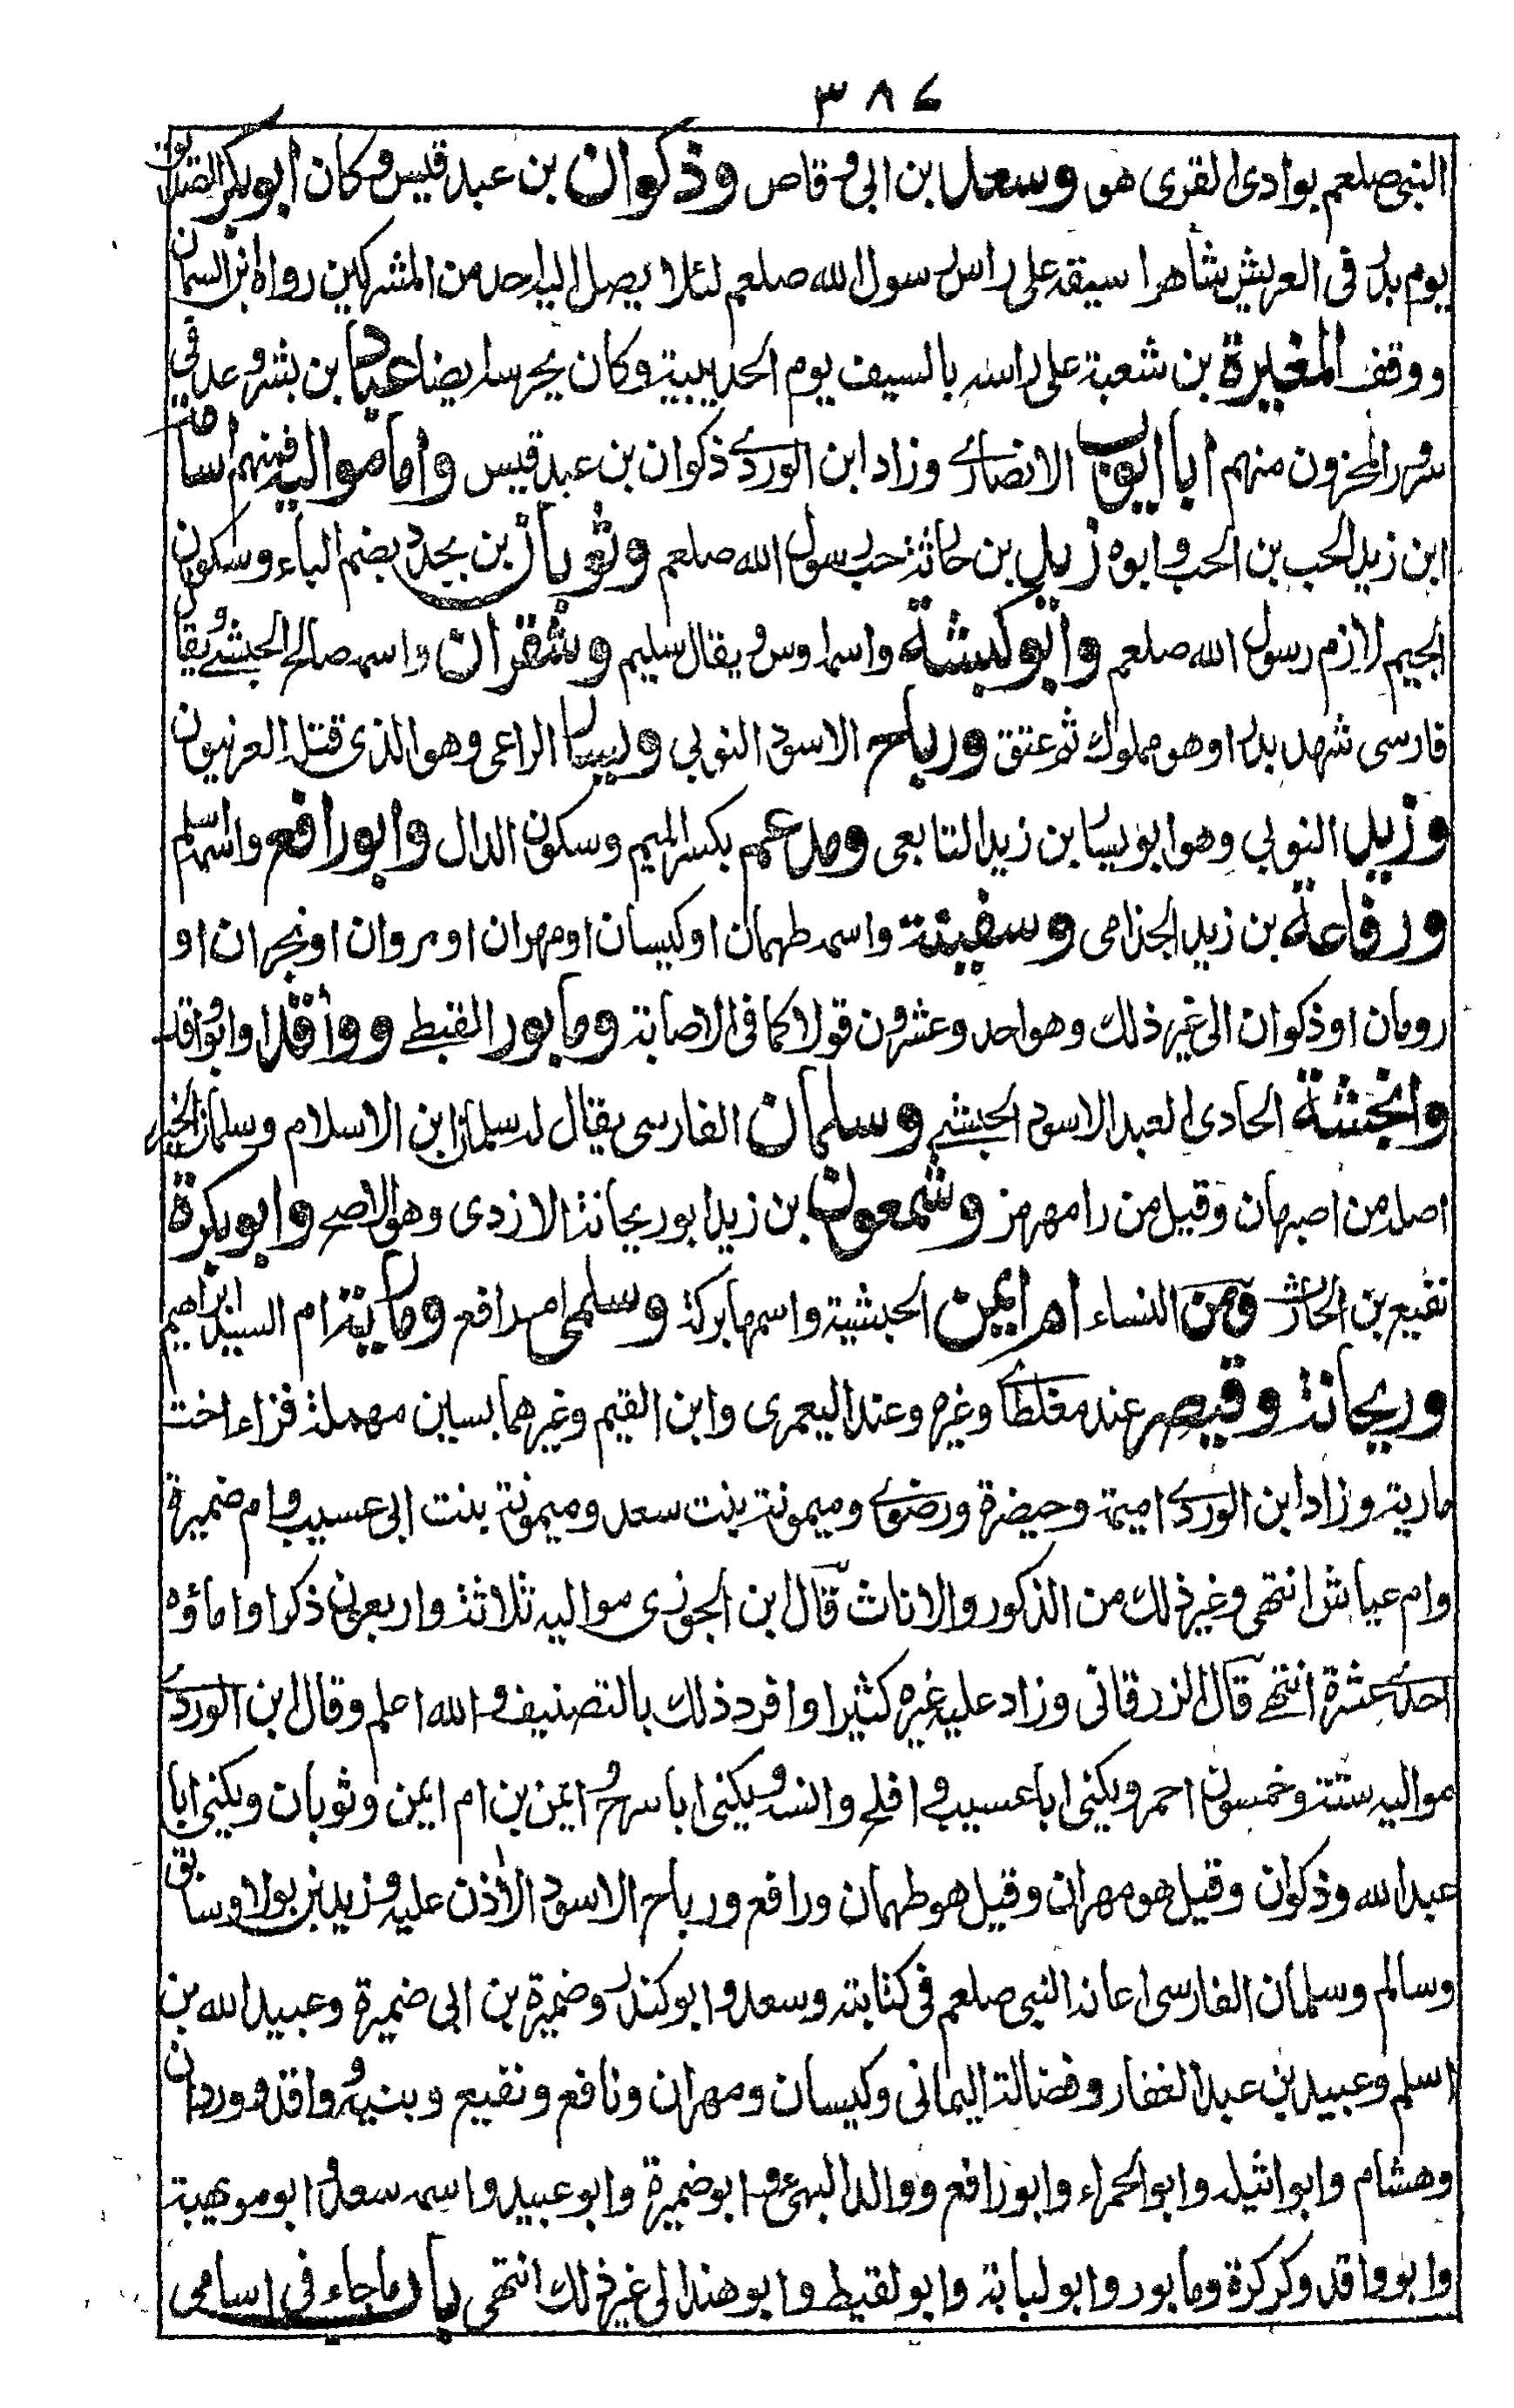 ٣٨٦
النبي صلعم بوادي القرى هو وسعد بن ابي وقاص وذكوان بن عبد قيس وكان ابو بكر الصديق
يوم بدر في العريش شاهرا سيفه على راس رسول الله صلعم لئلا يصل اليه احد من المشركين رواه ابن السمان
ووقف المغيرة بن شعبة على راسه بالسيف يوم الحديبية وكان يحرسه ايضا عباد بن بشر وعد في
منهم ابا ايوب الانصاري وزاد ابن الوردي ذكوان بن عبد قيس واما مواليه فمنهم اسامة
ابن زيد الحب بن الحب وابوه زيد بن حارثة حب رسول الله صلعم وثوبان بن بجدد بضم الباء وسكون
الجيم لازم رسول الله صلعم وابو كبشة واسمه اوس ويقال سليم وشقران واسمه صالح الحبشي ويقال
فارسي شهد بدرا وهو مملوك ثم عتق ورباح الاسود النوبي ويسار الراعي وهو الذي قتله العرنيون
وزيد النوبي وهو ابو يسار بن زيد التابعي ومدعم بكسر الميم وسكون الدال وابو رافع واسمه اسلم
ورفاعة بن زيد الجذامي وسفينة واسمه طهمان او كيسان او مهران او مروان او نجران او
رومان او ذكوان الى غير ذلك وهو احد وعشرون قولا كما في الاصابة ومابور القبطي وواقد او ابو واقد
وانجشة الحادي العبد الاسود الحبشي وسلمان الفارسي يقال له سلمان ابن الاسلام وسلمان الخير
اصله من اصبهان وقيل من رامهرمز وشمعون بن زيد ابو ريحانة الازدي وهو الاصح وابو بكرة
نفيع بن الحارث ومن النساء ام ايمن الحبشية واسمها بركة وسلمى ام رافع ومارية ام السيد ابراهيم
وريحانة وقيصر عند مغلطاي وغيره وعند اليعمري وابن القيم وغيرهما بسين مهملة فزاء اخت
مارية وزاد ابن الوردي اميمة وحيضرة ورضوى وميمونة بنت سعد وميمونة بنت ابي عسيب وام ضميرة
وام عياش انتهى وغير ذلك من الذكور والاناث قال ابن الجوزي مواليه ثلاثة واربعون ذكرا واماؤه
احدى عشرة انتهى قال الزرقاني وزاد عليه غيره كثيرا وافرد ذلك بالتصنيف والله اعلم وقال ابن الوردي
مواليه ستة وخمسون احمر ويكنى ابا عسيب وافلح وانسة ويكنى ابا سرح وايمن بن ام ايمن وثوبان ويكنى ابا
عبد الله وذكوان وقيل هو مهران وقيل هو طهمان ورافع ورباح الاسود الأذن عليه وزيد بن بولا وسابق
وسالم وسلمان الفارسي اعانه النبي صلعم في كتابته وسعد وابو كندير وضميرة بن ابي ضميرة وعبيد الله بن
اسلم وعبيد بن عبد الغفار وفضالة اليماني وكيسان ومهران ونافع ونفيع وبنيه وواقد ووردان
وهشام وابو اثيلة وابو الحمراء وابو رافع ووالد البهي وابو ضميرة وابو عبيد واسمه سعد وابو مويهبة
وابو واقد وكركرة ومابور وابو لبابة وابو لقيط وابو هند الى غير ذلك انتهى باب ما جاء في اسامي